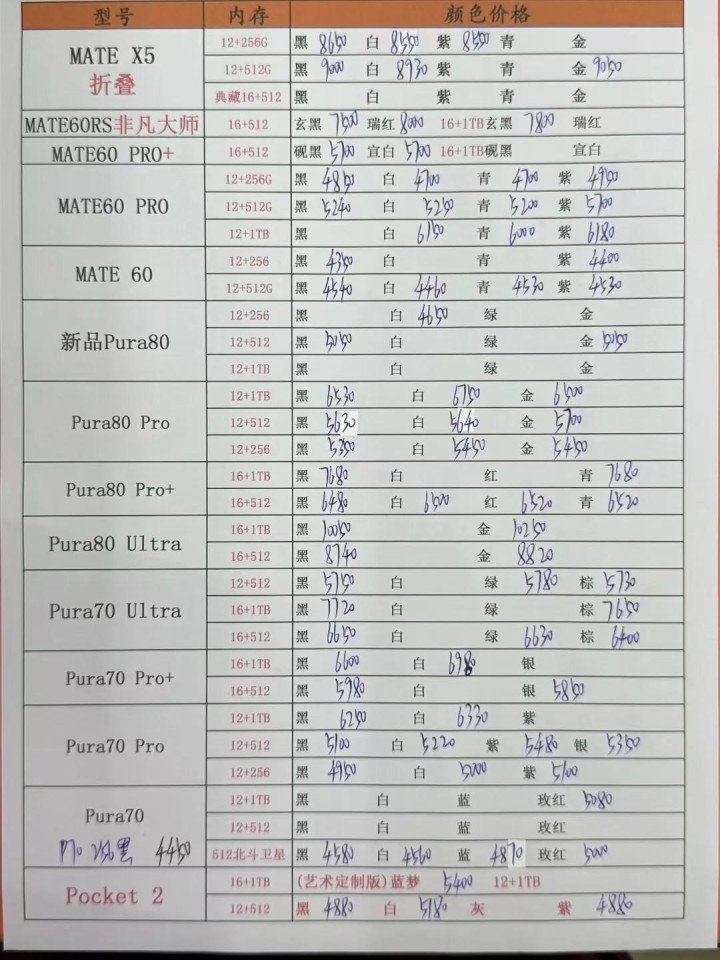 型号 内存 颜色价格
MATE X5 折叠
12+256G 黑 8650 白 8550 紫 8550 青 金
12+512G 黑 9000 白 8930 紫 青 金 9050
典藏16+512 黑 白 紫 青 金
MATE60RS非凡大师 16+512 玄黑 7500 瑞红 8000 16+1TB玄黑 7800 瑞红
MATE60 PRO+ 16+512 砚黑 5700 宣白 5700 16+1TB砚黑 宣白
MATE60 PRO
12+256G 黑 4850 白 4700 青 4700 紫 4950
12+512G 黑 5240 白 5250 青 5200 紫 5700
12+1TB 黑 白 6150 青 6000 紫 6180
MATE 60
12+256 黑 4350 白 青 紫 4400
12+512G 黑 4540 白 4460 青 4530 紫 4530
新品Pura80
12+256 黑 白 4650 绿 金
12+512 黑 5050 白 绿 金 5050
12+1TB 黑 白 绿 金
Pura80 Pro
12+1TB 黑 6530 白 6750 金 6500
12+512 黑 5630 白 5640 金 5700
12+256 黑 5350 白 5450 金 5450
Pura80 Pro+
16+1TB 黑 7680 白 红 青 7680
16+512 黑 6480 白 6500 红 6520 青 6520
Pura80 Ultra
16+1TB 黑 10050 金 10250
16+512 黑 8740 金 8820
Pura70 Ultra
12+512 黑 5750 白 绿 5780 棕 5730
16+1TB 黑 7720 白 绿 棕 7650
16+512 黑 6650 白 绿 6630 棕 6400
Pura70 Pro+
16+1TB 黑 6600 白 6980 银
16+512 黑 5980 白 银 5850
Pura70 Pro
12+1TB 黑 6250 白 6330 紫
12+512 黑 5100 白 5220 紫 5480 银 5350
12+256 黑 4950 白 5000 紫 5100
Pura70
12+1TB 黑 白 蓝 玫红 5080
12+512 黑 白 蓝 玫红
P70 256黑 4450
512北斗卫星 黑 4580 白 4560 蓝 4870 玫红 5000
Pocket 2
16+1TB (艺术定制版)蓝梦 5400 12+1TB
12+512 黑 4880 白 5180 灰 紫 4880